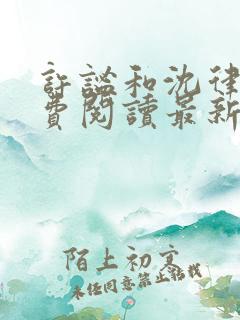 許謐和沈律
費閱讀最新
陌上初寞
未经同意禁止搭我